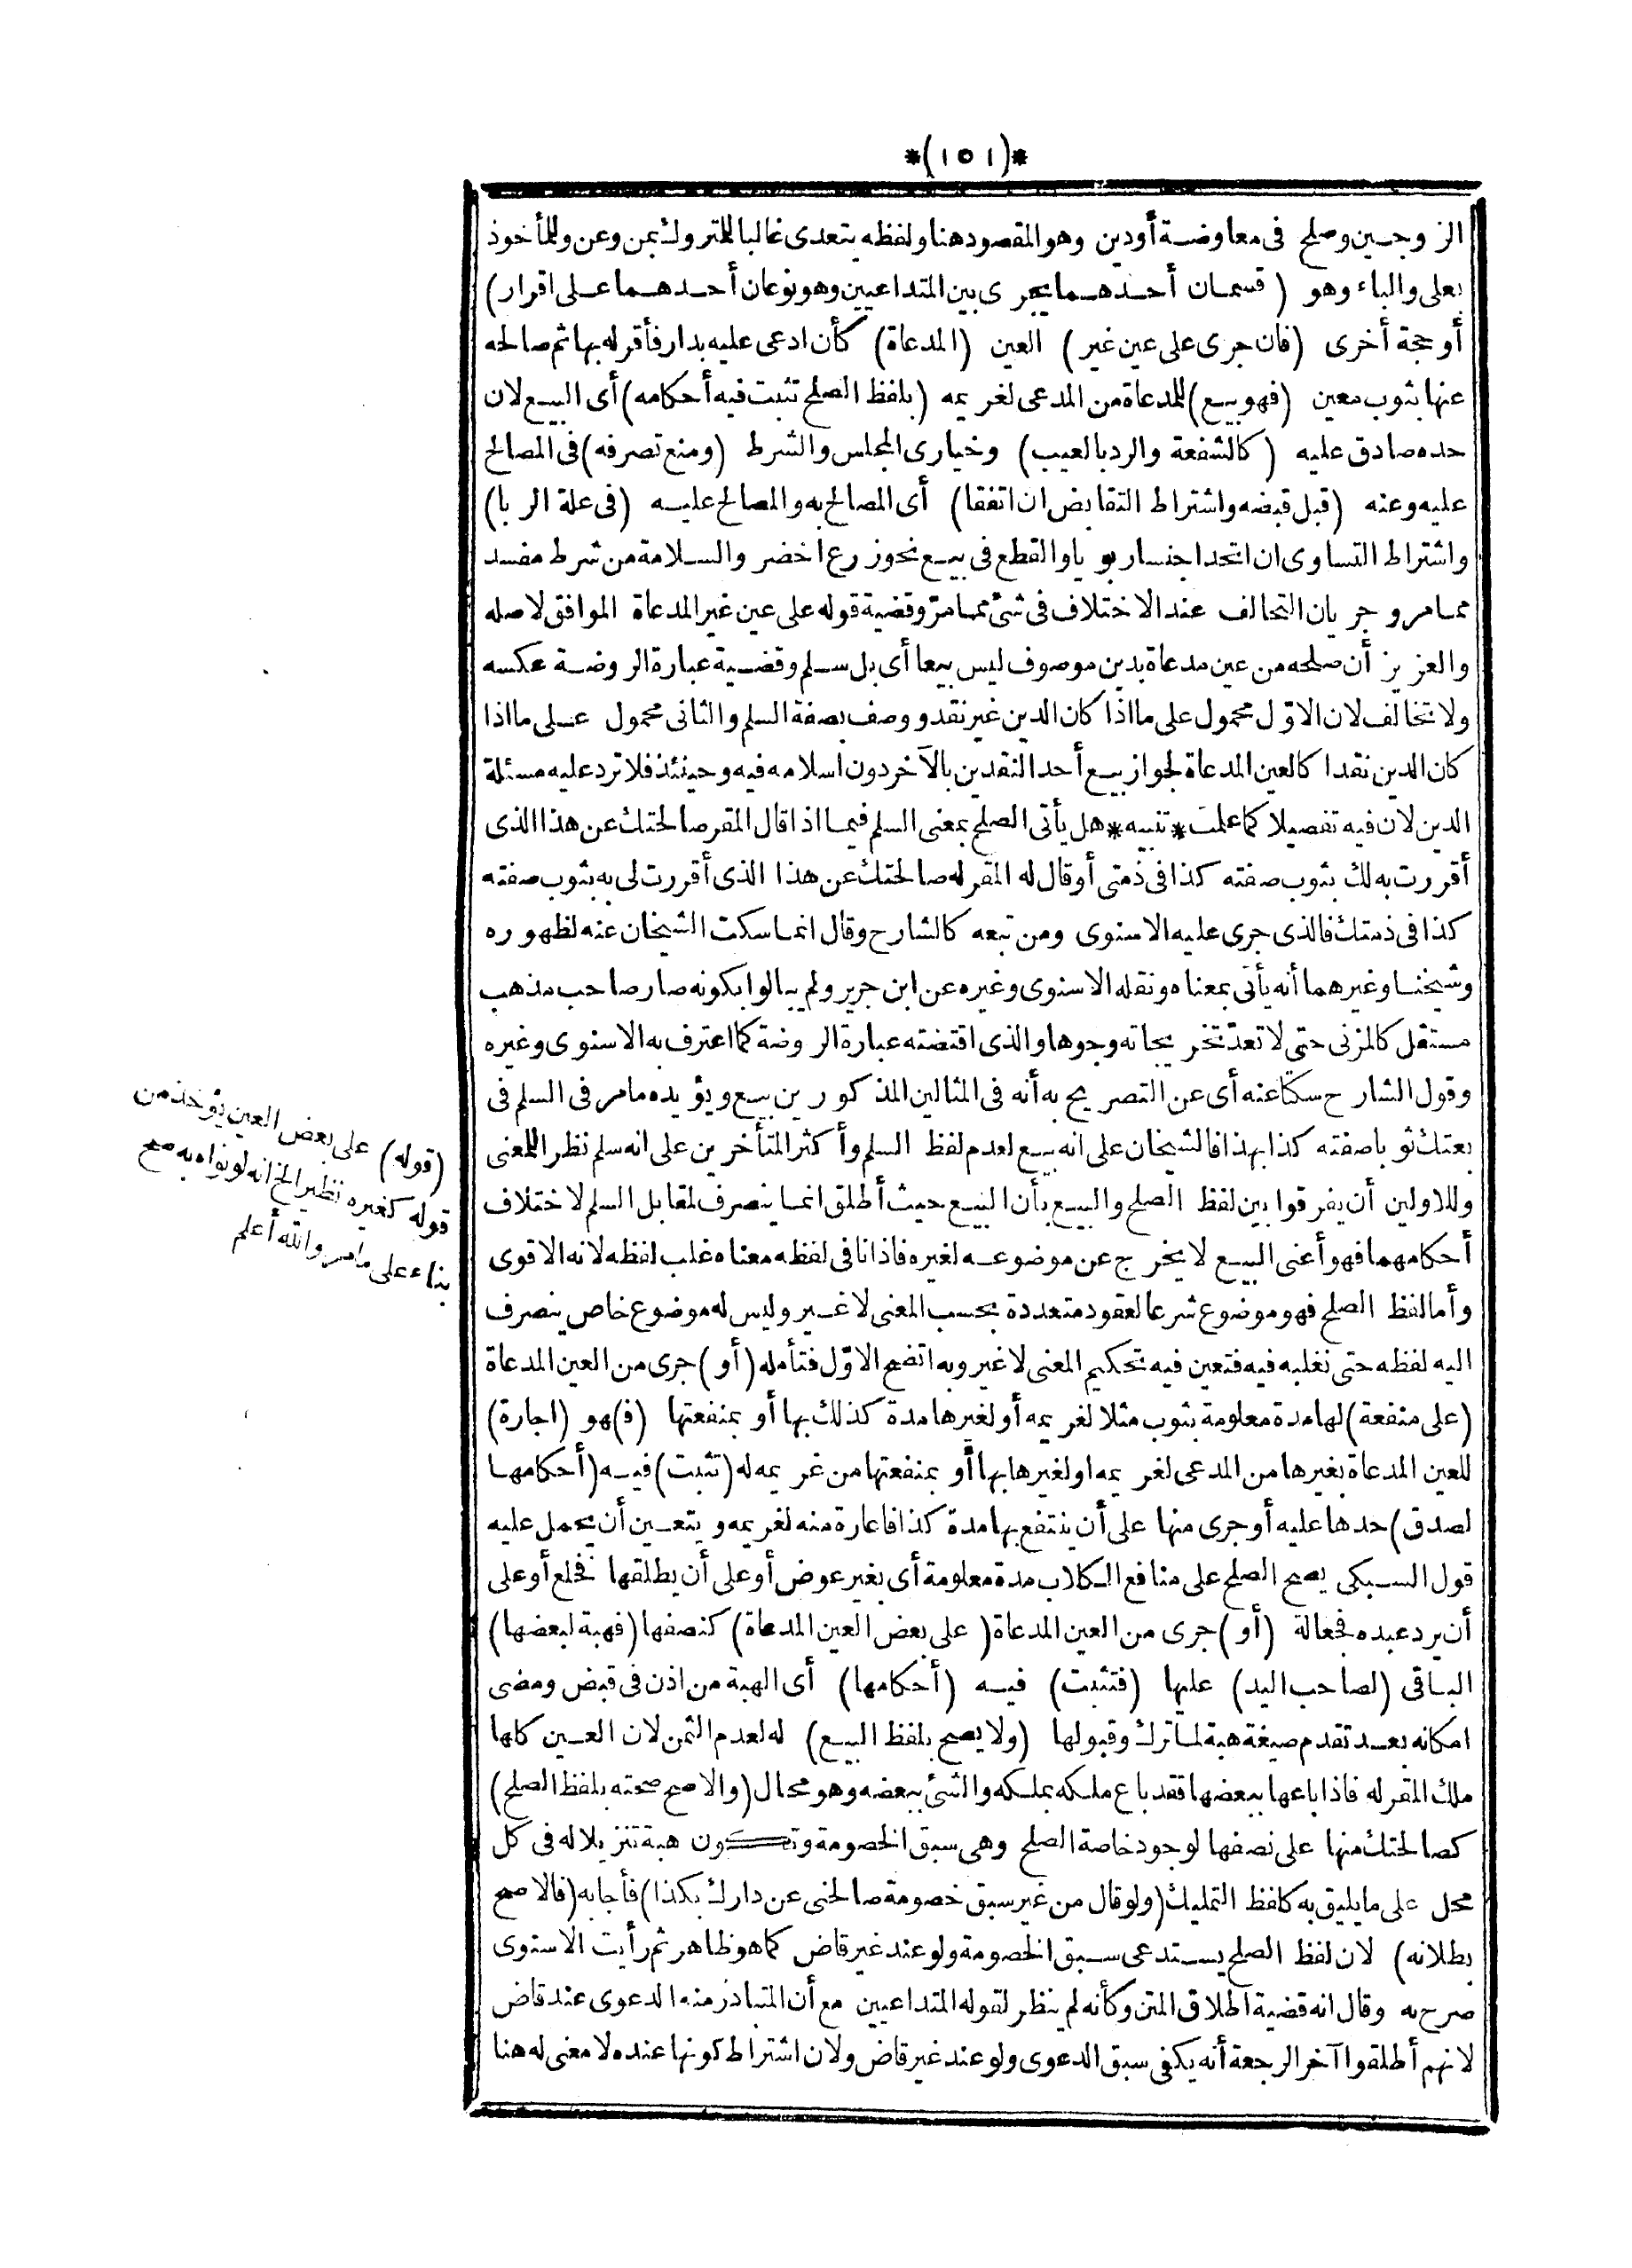 *(١٥١)*
الزوجين وصلح فى معاوضة أودين وهو المقصود هنا ولفظه يتعدى غالبا للمتروك بمن وعن وللمأخوذ
بعلى والباء وهو (قسمان أحدهما يجرى بين المتداعيين وهو نوعان أحدهما على اقرار)
أوحجة أخرى (فان جرى على عين غير) العين (المدعاة) كأن ادعى عليه بدار فأقر له بها ثم صالحه
عنها بثوب معين (فهو بيع) للمدعاة من المدعى لغريمه (بلفظ الصلح تثبت فيه أحكامه) أى البيع لان
حده صادق عليه (كالشفعة والرد بالعيب) وخيارى المجلس والشرط (ومنع تصرفه) فى المصالح
عليه وعنه (قبل قبضه واشتراط التقابض ان اتفقا) أى المصالح به والمصالح عليه (فى علة الربا)
واشتراط التساوى ان اتحدا جنسا ربويا والقطع فى بيع نحو زرع اخضر والسلامة من شرط مفسد
ممامر وجريان التحالف عند الاختلاف فى شئ ممامرّ وقضية قوله على عين غير المدعاة الموافق لاصله
والعزيز أن صلحه من عين مدعاة بدين موصوف ليس بيعا أى بل سلم وقضية عبارة الروضة عكسه
ولا تخالف لان الاوّل محمول على مااذا كان الدين غير نقد ووصف بصفة السلم والثانى محمول على مااذا
كان الدين نقدا كالعين المدعاة لجواز بيع أحد النقدين بالآخر دون اسلامه فيه وحينئذ فلا ترد عليه مسئلة
الدين لان فيه تفصيلا كما علمت *تنبيه* هل يأتى الصلح بمعنى السلم فيما اذا قال المقر صالحتك عن هذا الذى
أقررت به لك بثوب صفته كذا فى ذمتى أوقال له المقر له صالحتك عن هذا الذى أقررت لى به بثوب صفته
كذا فى ذمتك فالذى جرى عليه الاسنوى ومن تبعه كالشارح وقال انما سكت الشيخان عنه لظهوره
وشيخنا وغيرهما أنه يأتى بمعناه ونقله الاسنوى وغيره عن ابن جرير ولم يبالوا بكونه صار صاحب مذهب
مستقل كالمزنى حتى لا تعدّ تخريجاته وجوها والذى اقتضته عبارة الروضة كما اعترف به الاسنوى وغيره
وقول الشارح سكتا عنه أى عن التصريح به أنه فى المثالين المذكورين بيع ويؤيده مامر فى السلم فى
بعتك ثوبا صفته كذا بهذا فالشيخان على انه بيع لعدم لفظ السلم وأكثر المتأخرين على انه سلم نظرا للمعنى
وللاولين أن يفرقوا بين لفظ الصلح والبيع بأن البيع حيث أطلق انما ينصرف لمقابل السلم لاختلاف
أحكامهما فهو أعنى البيع لا يخرج عن موضوعه لغيره فاذا نافى لفظه معناه غلب لفظه لانه الاقوى
وأما لفظ الصلح فهو موضوع شرعا لعقود متعددة بحسب المعنى لا غير وليس له موضوع خاص ينصرف
اليه لفظه حتى نغلبه فيه فتعين فيه تحكيم المعنى لا غير وبه اتضح الاوّل فتأمله (أو) جرى من العين المدعاة
(على منفعة) لها مدة معلومة بثوب مثلا لغريمه أولغيرها مدة كذلك بها أو بمنفعتها (ف) هو (اجارة)
للعين المدعاة بغيرها من المدعى لغريمه اولغيرها بها أو بمنفعتها من غريمه له (تثبت) فيه (أحكامها
لصدق) حدها عليه أوجرى منها على أن ينتفع بها مدة كذا فاعارة منه لغريمه ويتعين أن يحمل عليه
قول السبكى يصح الصلح على منافع الكلاب مدة معلومة أى بغير عوض أوعلى أن يطلقها فخلع أوعلى
أن يرد عبده فجعالة (أو) جرى من العين المدعاة (على بعض العين المدعاة) كنصفها (فهبة لبعضها)
الباقى (لصاحب اليد) عليها (فتثبت) فيه (أحكامها) أى الهبة من اذن فى قبض ومضى
امكانه بعد تقدم صيغة هبة لماترك وقبولها (ولا يصح بلفظ البيع) له لعدم الثمن لان العين كلها
ملك المقر له فاذا باعها ببعضها فقد باع ملكه بملكه والشئ ببعضه وهو محال (والاصح صحته بلفظ الصلح)
كصالحتك منها على نصفها لوجود خاصة الصلح وهى سبق الخصومة وتكون هبة تنزيلا له فى كل
محل على مايليق به كلفظ التمليك (ولو قال من غير سبق خصومة صالحنى عن دارك بكذا) فأجابه (فالاصح
بطلانه) لان لفظ الصلح يستدعى سبق الخصومة ولو عند غير قاض كما هو ظاهر ثم رأيت الاسنوى
صرح به وقال انه قضية اطلاق المتن وكأنه لم ينظر لقوله المتداعيين مع أن المتبادر منه الدعوى عند قاض
لانهم أطلقوا آخر الرجعة أنه يكفى سبق الدعوى ولو عند غير قاض ولان اشتراط كونها عنده لا معنى له هنا
(قوله) على بعض العين يؤخذ من
قوله كغيره نظير الخ انه لو نواه به صح
بناء على مامر والله أعلم